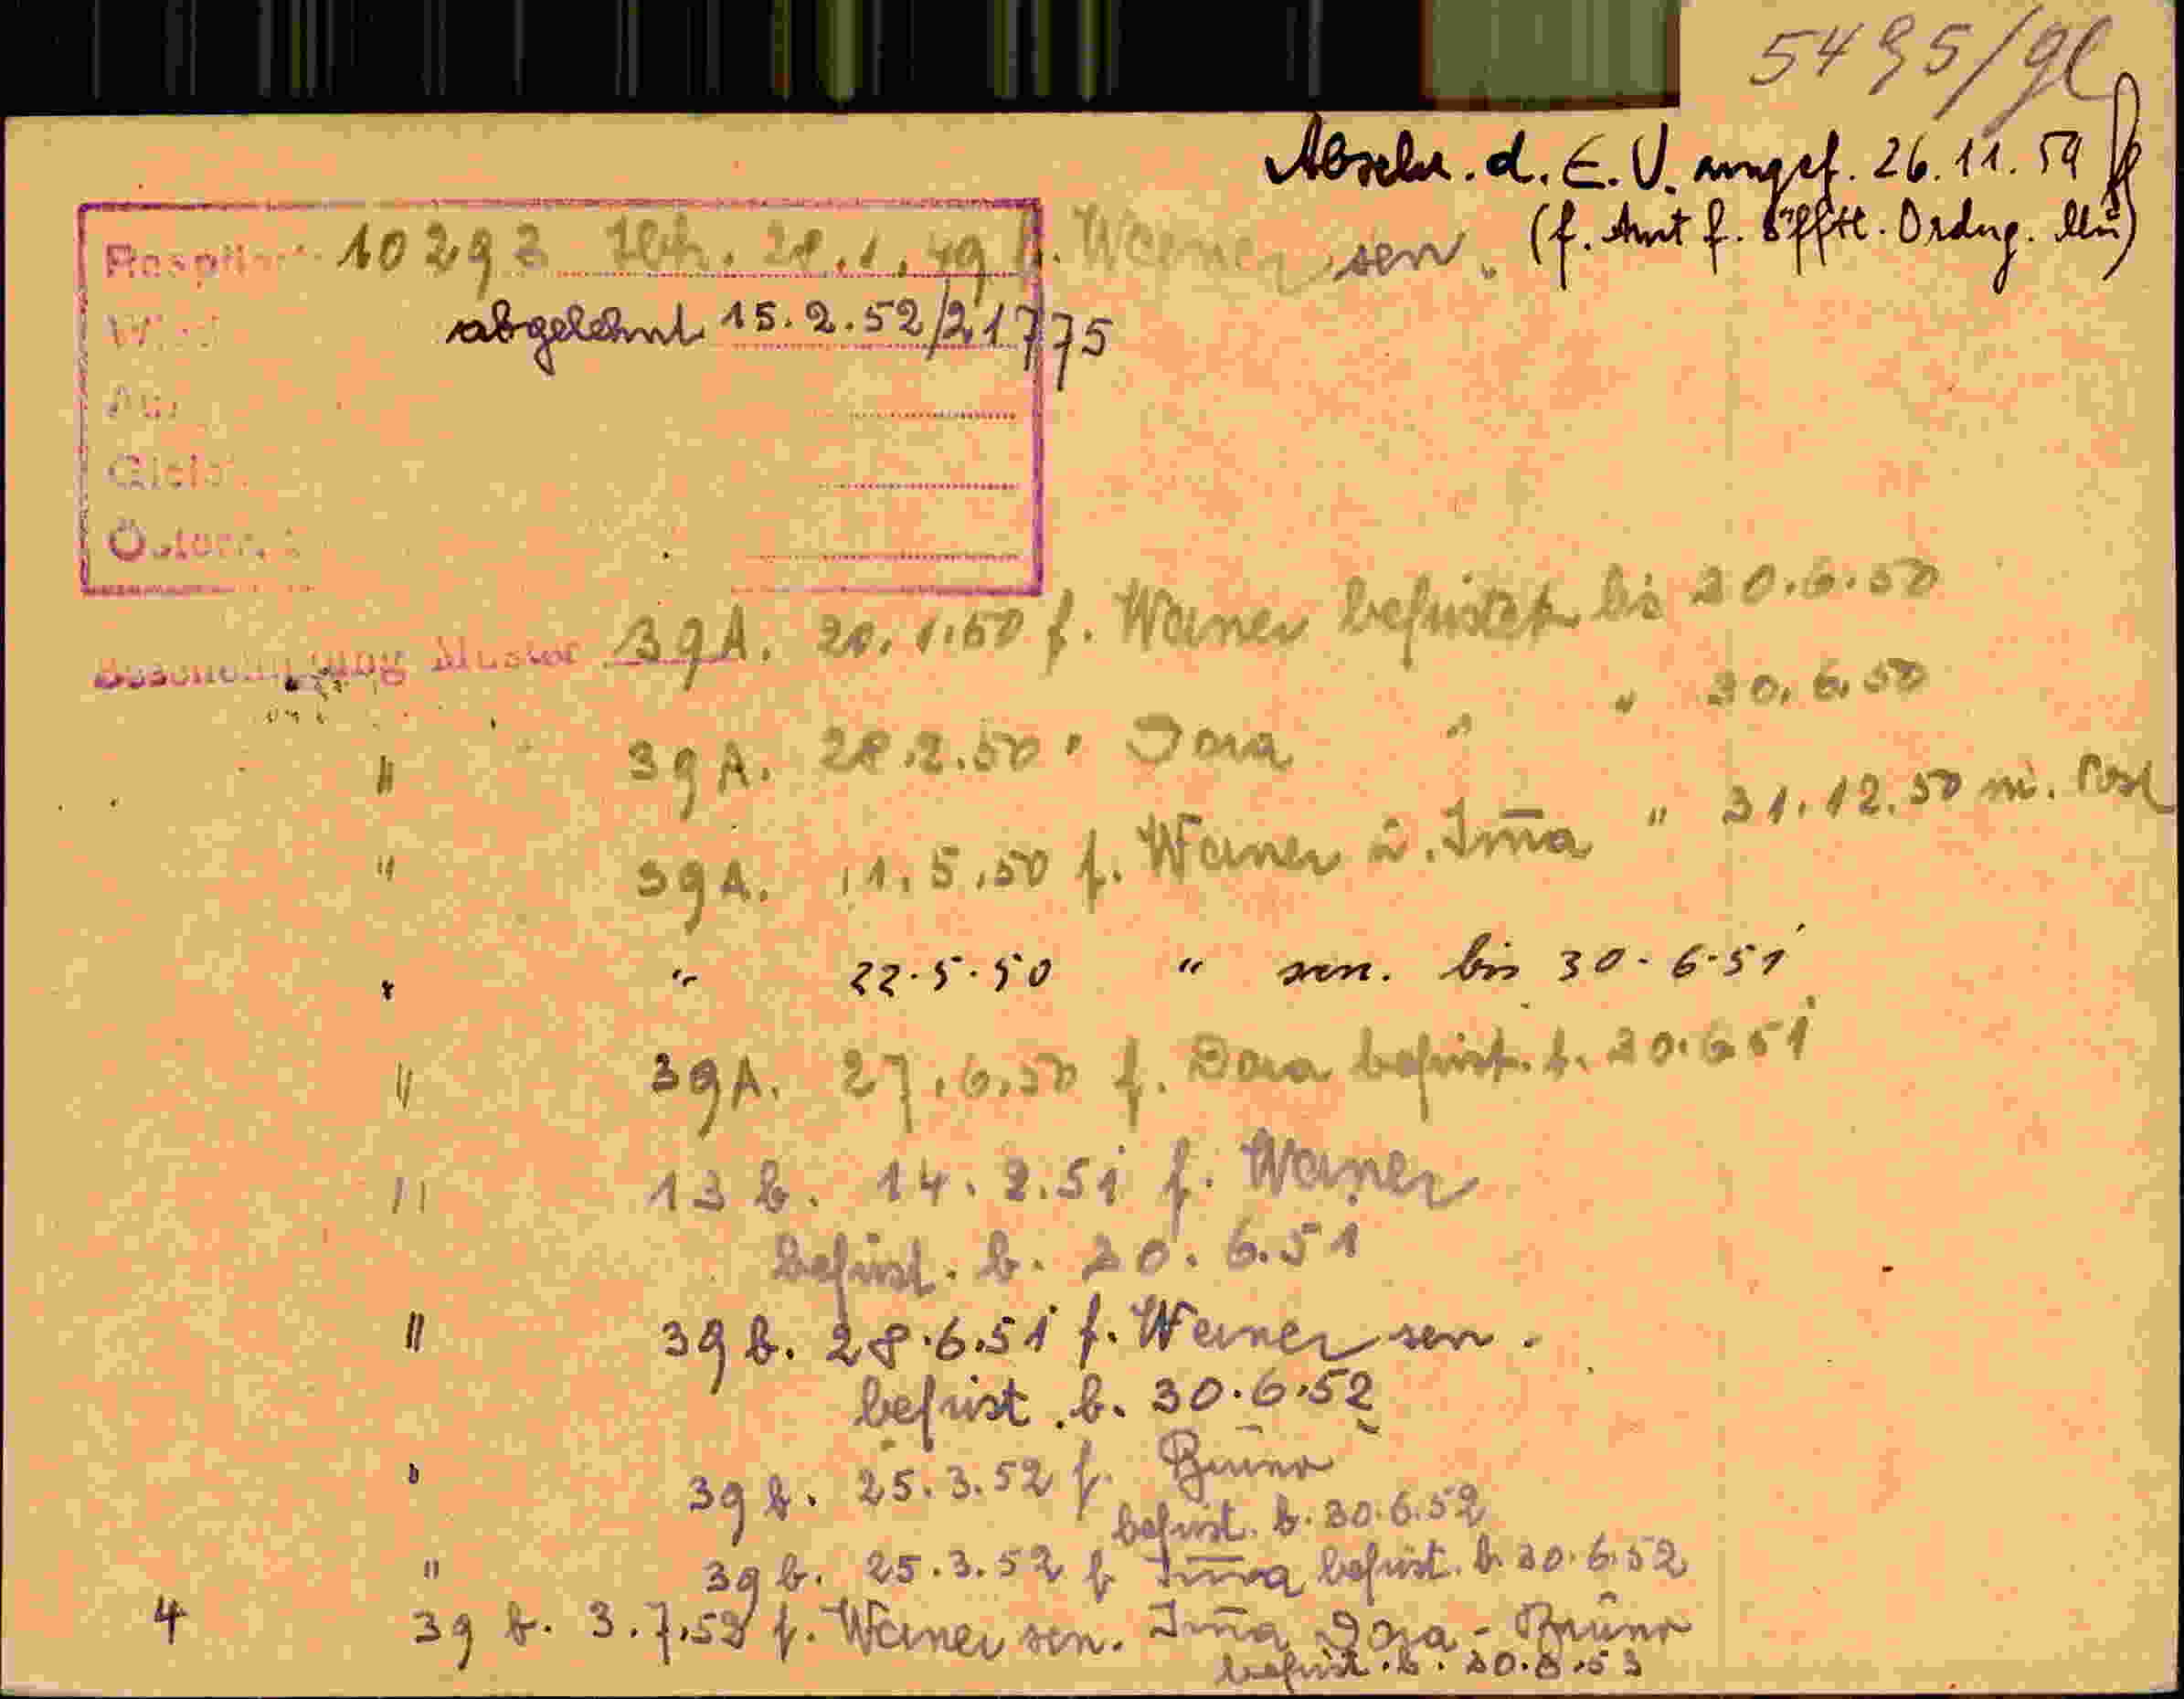 5495/gl
Abschr. d. E. V. ausgef. 26.11.59
(f. Amt f. öfftl. Ordng. Mü)
10293 28.1.49 f. Werner sen.
abgelehnt 15.2.52/21775
Österr.
Bescheinigung Muster 39A. 20.1.50 f. Werner befristet bis 30.6.50
" 39A. 28.2.50 " Dora " " 30.6.50
" 39A. 11.5.50 f. Werner ū. Im̄a " 31.12.50 m. Post
" " 22.5.50 " sen. bis 30.6.51
" 39A. 27.6.50 f. Dora befrist. b. 30.6.51
" 13b. 14.2.51 f. Werner
befrist. b. 30.6.51
" 39b. 28.6.51 f. Werner sen.
befrist. b. 30.6.52
" 39b. 25.3.52 f. Brūno
befrist. b. 30.6.52
" 39b. 25.3.52 f. Im̄a befrist. b. 30.6.52
4 39b. 3.7.52 f. Werner sen. Im̄a Dora - Brūno
befrist. b. 30.6.53